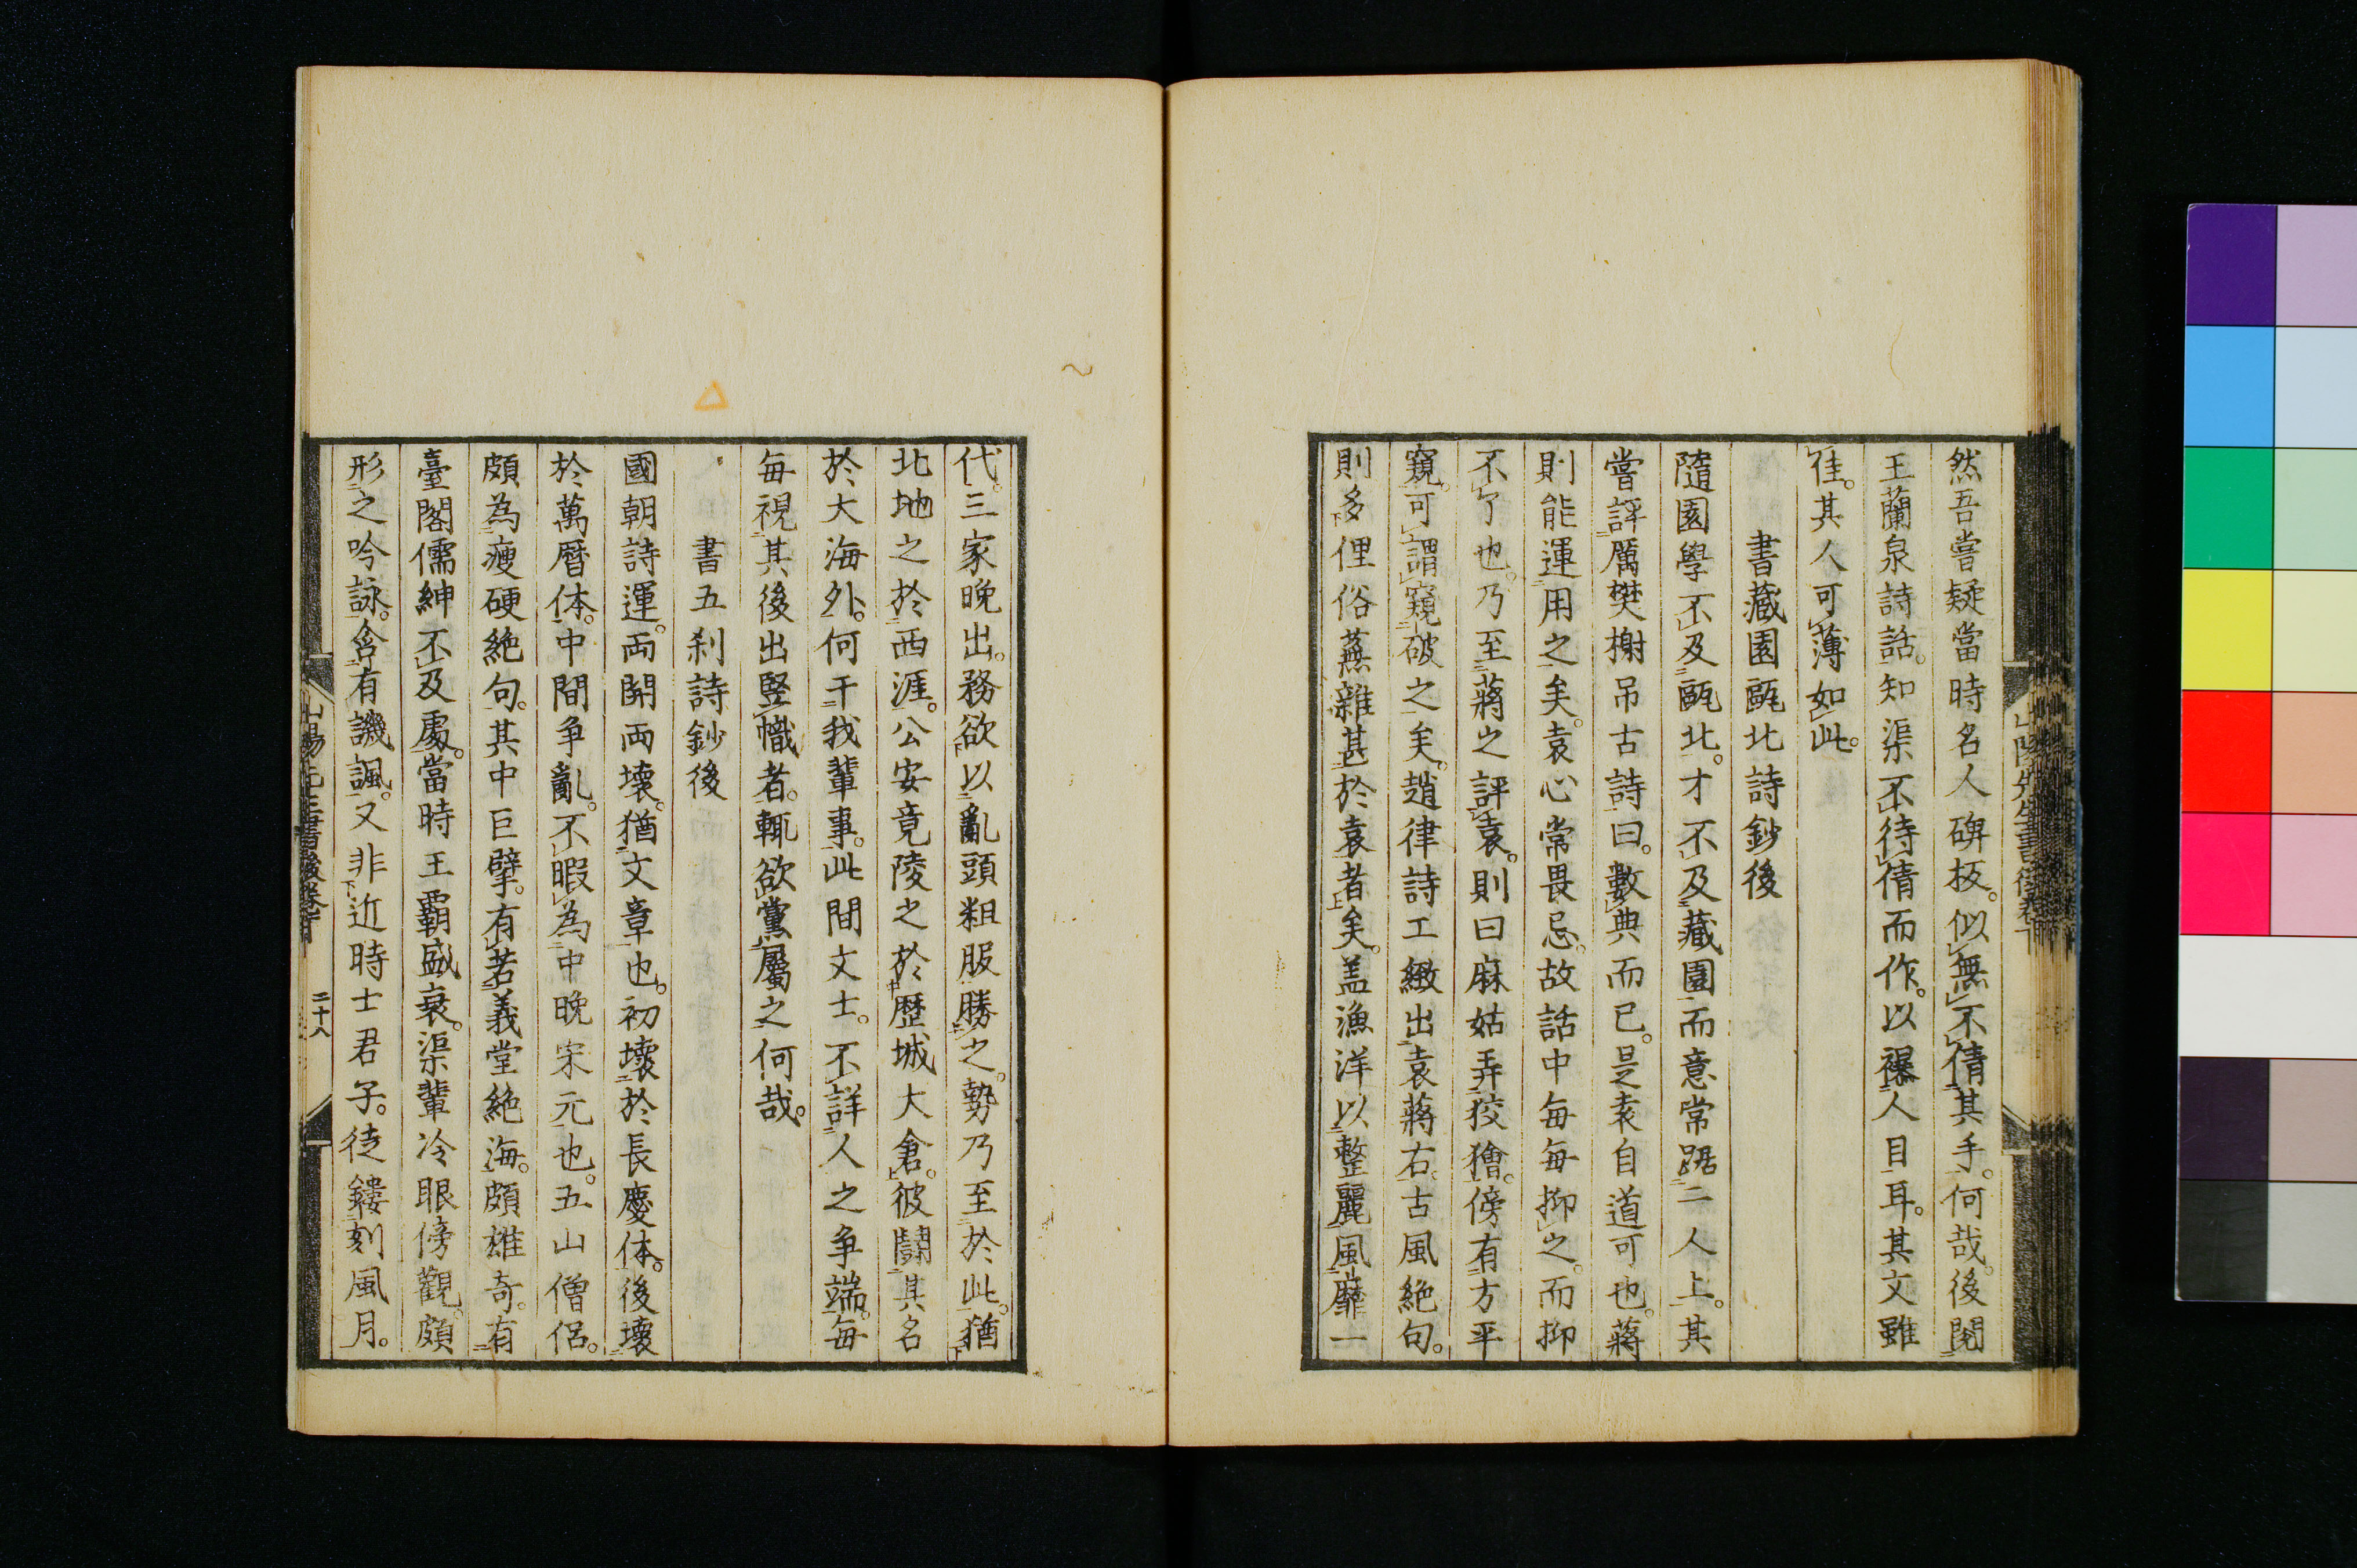 然吾嘗疑當時名人碑板。似無不倩其手。何哉。後閱
王蘭泉詩話。知渠不待倩而作。以襮人目耳。其文雖
佳。其人可薄如此。
書藏園甌北詩鈔後
隨園學不及甌北。才不及藏園。而意常踞二人上。其
嘗評厲樊榭吊古詩曰。數典而已。是袁自道可也。蔣
則能運用之矣。袁心常畏忌。故話中每每抑之。而抑
不了也。乃至蔣之評袁。則曰麻姑弄狡獪。傍有方平
窺。可謂窺破之矣。趙律詩工緻出袁蔣右。古風絶句。
則多俚俗蕪雜甚於袁者矣。盖漁洋以整麗風靡一
代。三家晚出。務欲以亂頭粗服勝之。勢乃至於此。猶
北地之於西涯。公安竟陵之於歷城大倉。彼鬪其名
於大海外。何干我輩事。此間文士。不詳人之争端。每
每視其後出竪幟者。輒欲黨屬之何哉。
書五刹詩鈔後
國朝詩運。兩開兩壞。猶文章也。初壞於長慶体。後壞
於萬曆体。中間争亂。不暇為中晚宋元也。五山僧侶。
頗為瘦硬絶句。其中巨擘。有若義堂絶海。頗雄奇。有
臺閣儒紳不及處。當時王覇盛衰。渠輩冷眼傍觀。頗
形之吟詠。含有譏諷。又非近時士君子。徒鏤刻風月。
二十八